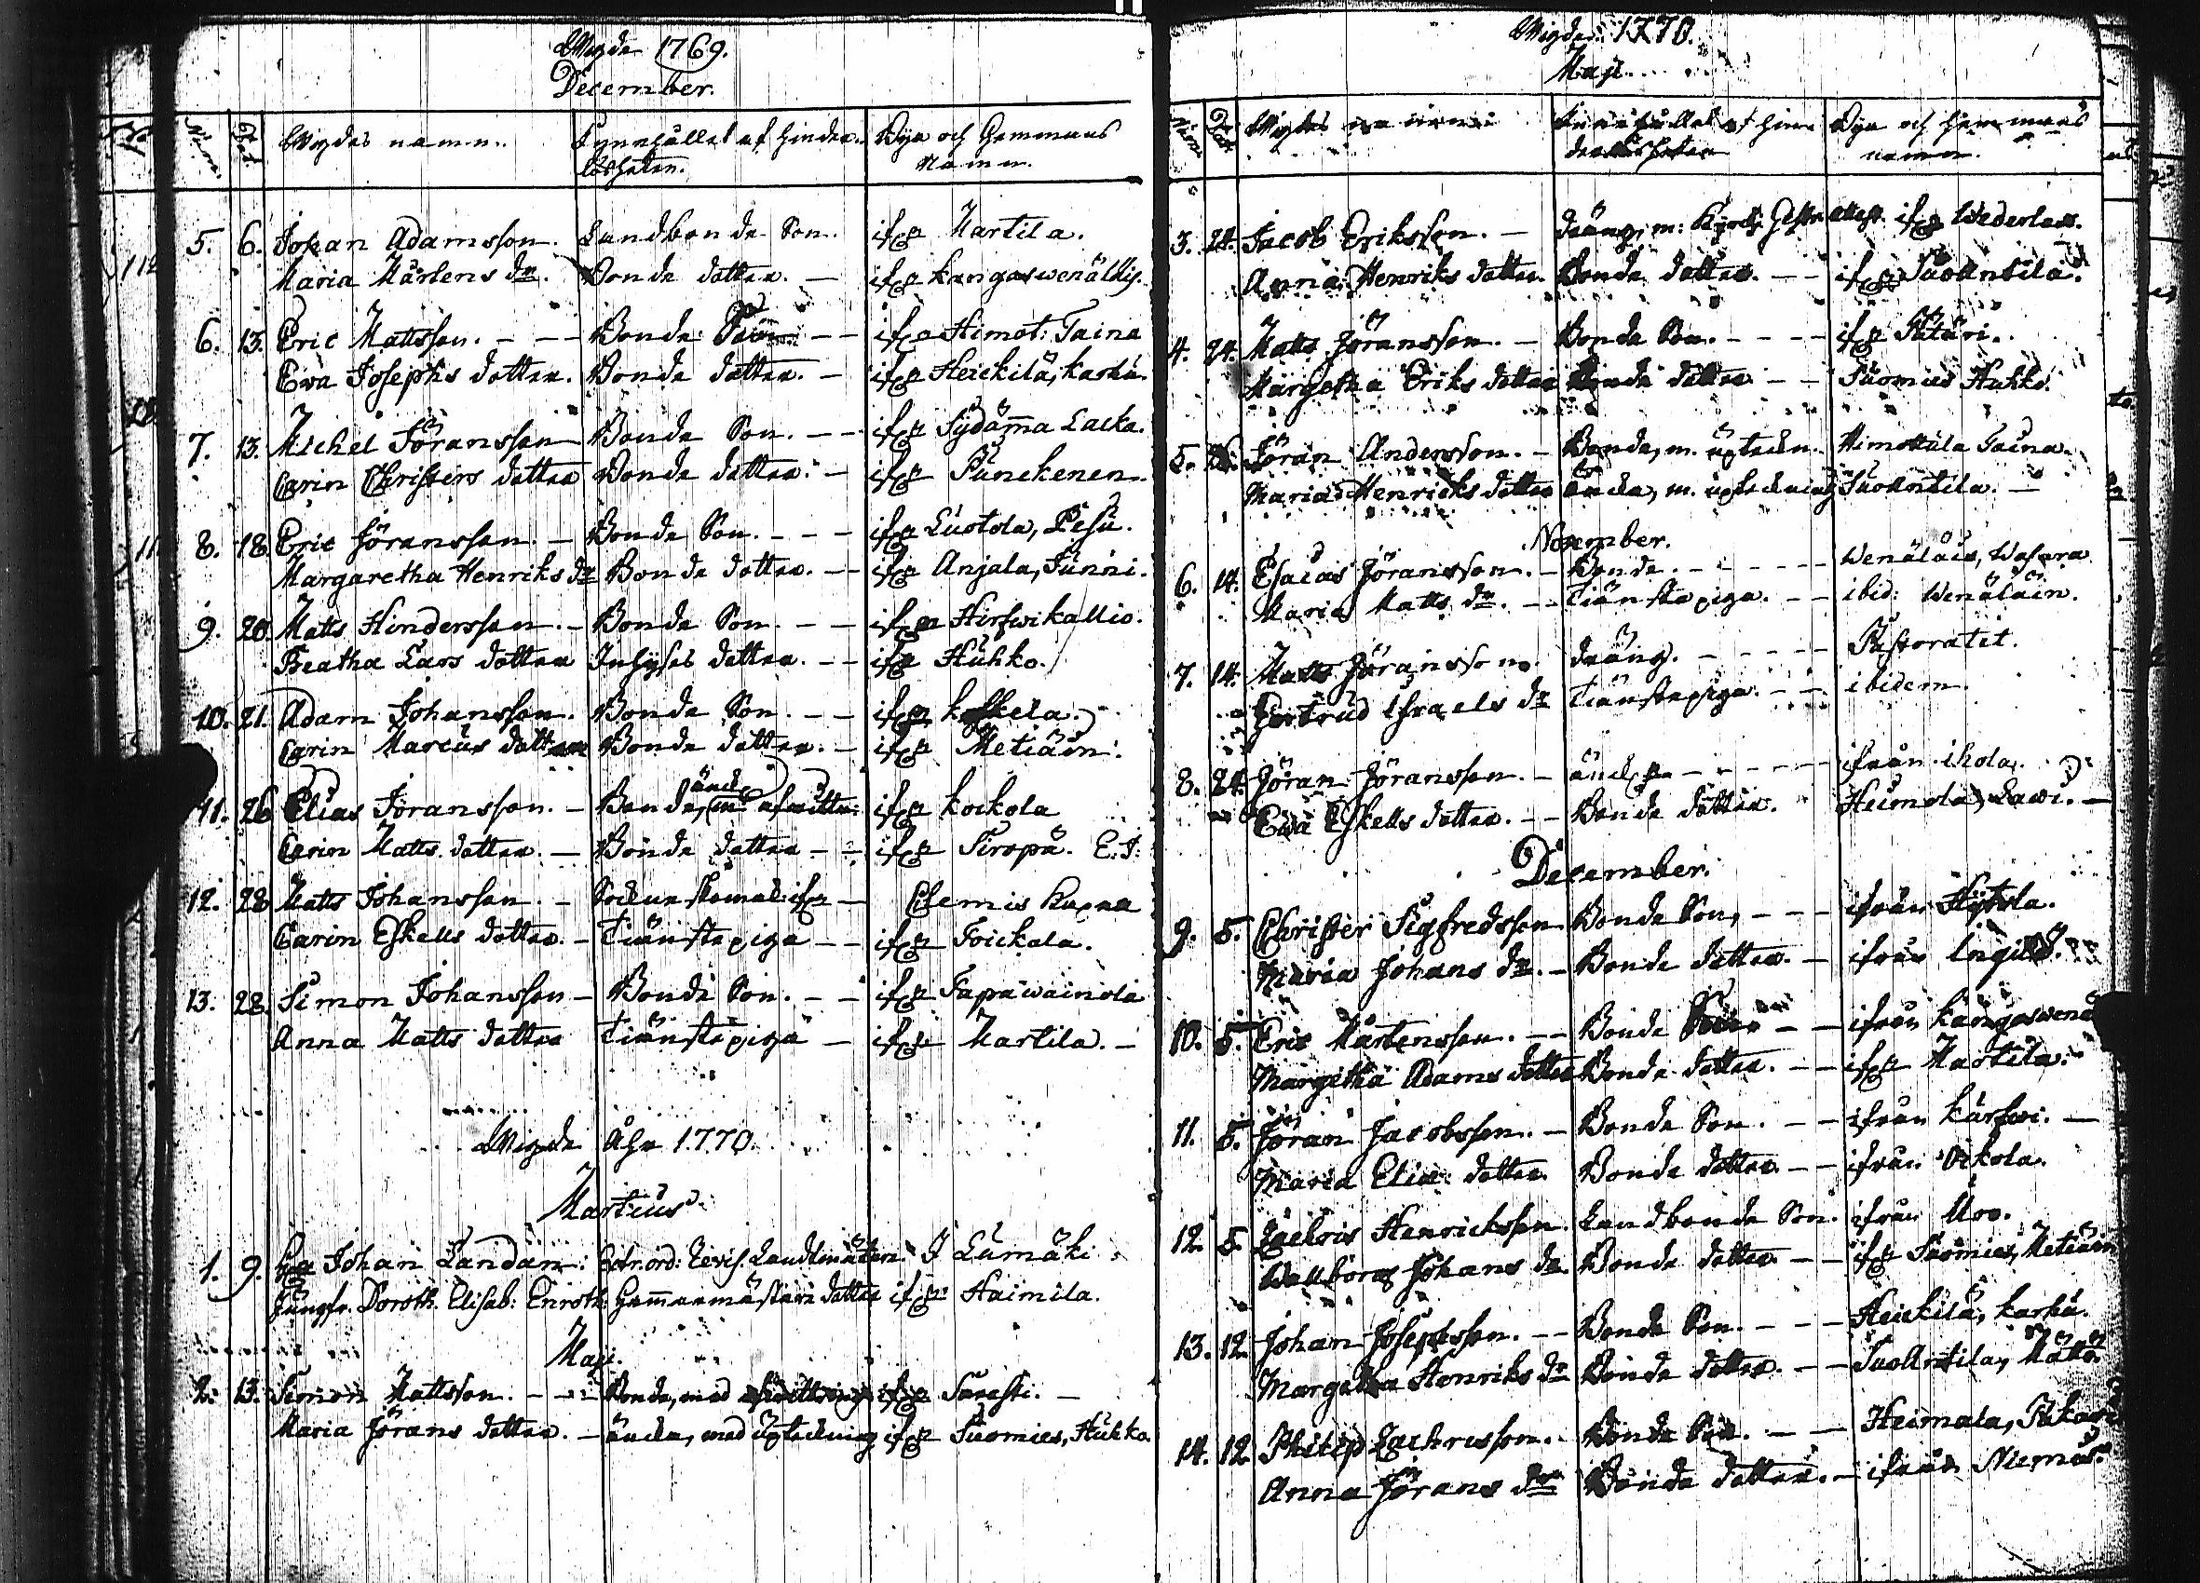 Wigde 1769.
December.
Num. Dat. Wigdes namn. Synnehållet af hinderlösheten. Bya och Hemmans Namn.
5. 6. Johan Adamsson. Landbonde Son. ifr Martila.
Maria Mårtens dr. Bonde dotter. — ifr Kangaswenälläis.
6. 13. Eric Mattsson. - - - Bonde Son - - ifr Himot: Taina
Ewa Josephs dotter. Bonde dotter. — ifr Heickilä, Karhu.
7. 13. Michel Jöransson Bonde Son. - - ifr Sydämma Lacka.
Carin Christers dotter Bonde dotter. — ifr Punckenen.
8. 18. Eric Jöransson. — Bonde Son. - - - ifr Luotola, Pesu.
Margaretha Henriks dr Bonde dotter. - - ifr Anjala, Junni.
9. 20. Matts Hindersson. - Bonde Son. - - ifr Hirfwikallio.
Beatha Lars dotter Inhyses dotter. - - ifr Huhko.
10. 21. Adam Johansson. Bonde Son. - - ifr
Carin Marcus dotter Bonde dotter. — ifr Metiäin.
11. 26. Elias Jöransson. — Bonde, änck: m: afwittr: ifr Kockola
Carin Matts dotter. — Bonde dotter - - ifr Siropä. E. I:
12. 28. Matts Johansson. - Sockne skomak: ifr — Clemis Kupna
Carin Eskells dotter. - Tiänstepiga - - ifr Toickala.
13. 28. Simon Johansson — Bonde Son. - - ifr Tapawainola
Anna Matts dotter Tiänstepiga — ifr Martila. -
Wigde Åhr 1770.
Martius.
1. 9. Hr Johan Landan: Extr.ord: Revis. Landtmätare I Lumäki
Jungfr. Doroth. Elisab: Enroth. dotter ifr Haimila.
Maji.
2. 13. Simon Mattsson. - - - Bonde, med afwittring ifr Surasti. —
Maria Jörans dotter. — äncka, med ifr Suomies, Huhko.
Wigde 1770.
Maji.
Num. Dat. Wigdes namn Synnehållet af hinderlösheten Bya och hemmans namn.
3. 24. Jacob Eriksson. — dräng, m: attest. ifr Wederlax.
Anna Henriks dotter. Bonde dotter. - - ifr Suollntila.
4. 24. Matts Jöransson. - Bonde Son. - - - - ifr Pätäri.
Margetha Eriks dotter Bonde dotter - - Suomies Huhko.
5. Jöran Andersson. — Bonde, m. Himottula Taina.
Maria Henricks dotter äncka, m. Suollntila. —
November.
6. 14. Esaias Jöransson. - Bonde. - - - - - Wenäläis, Wasara
Maria Matts dr. - - Tiänstepiga. - - ibid: Wenäläin.
7. 14. Matts Jöransson. dräng. - - - - - Pastoratet.
Gertrud Israels dr Tiänstepiga. - - ibidem.
8. 24. Jöran Jöransson. — änckl. - - - - - ifrån ikola.
Ewa Eskells dotter. - - Bonde dotter. Heimola, Lawi. —
December.
9. 5. Christer Sigfredsson Bonde Son, - - - ifrån
Maria Johans dr. - Bonde dotter. — ifrån
10. 5. Eric Mårtensson. - - Bonde Son - - ifrån
Margetha Adams dotter Bonde dotter. - - ifr Martila.
11. 5. Jöran Jacobsson. — Bonde Son. - - ifrån Kärfwi. —
Maria Eliæ dotter Bonde dotter - - ifrån Oikola.
12. 5. Zachris Henricksson. Landbonde Son. ifrån Uro.
Wallborg Johans dr. Bonde dotter - - ifr Suomies, Metiäin
13. 12. Johan Josephsson. - - Bonde Son. - - - Heickilä, Karhu.
Margetha Henriks dr Bonde dotter. - - Suollntila, Mättö.
14. 12. Philip Zachrisson. - Bonde Son. - - Heimala,
Anna Jörans dr Bonde dotter. — ifrån Niemis.